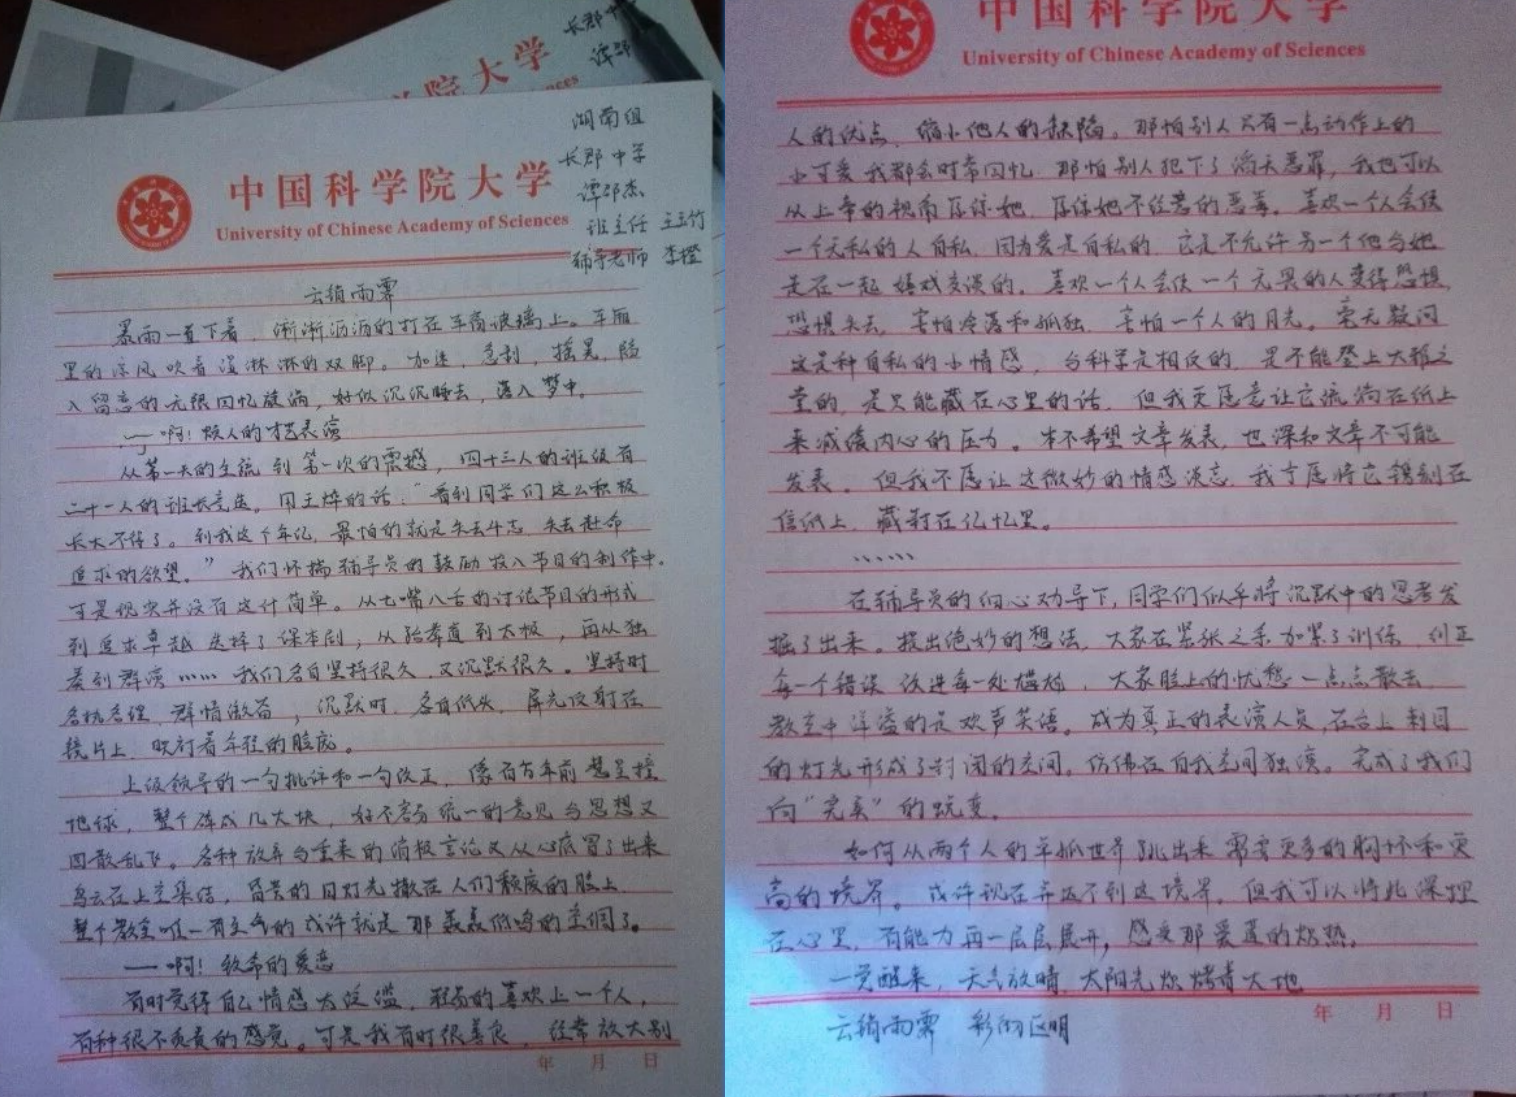 长郡中
谭邵
学院大学
ences
湖南组
长郡中学
谭邵杰
班主任 王立竹
辅导老师 李橙
中国科学院大学
University of Chinese Academy of Sciences
云销雨霁
暴雨一直下着，淅淅沥沥的打在车窗玻璃上。车厢
里的凉风吹着湿淋淋的双脚。加速，急刹，摇晃，陷
入留恋的无限回忆旋涡，好似沉沉睡去，落入梦中。
——啊！烦人的才艺表演
从第一天的主流到第一次的震撼，四十三人的班级有
二十一人的班长竞选。用王焯的话：“看到同学们这么积极
长大不得了。到我这个年纪，最怕的就是失去斗志，失去赴命
追求的欲望。”我们怀揣辅导员的鼓励投入节目的制作中。
可是现实并没有这什简单。从七嘴八舌的讨论节目的形式
到追求卓越选择了课本剧；从孙孝直到太极，再从独
差到群演……我们各自坚持很久，又沉默很久。坚持时
各执各理，群情激奋；沉默时，各自低头，屏光反射在
镜片上，映衬着年轻的脸庞。
上级领导的一句批评和一句改正，像百万年前彗星撞
地球，整个碎成几大块，好不容易统一的意见与思想又
四散乱飞。各种放弃与重来的消极言论又从心底冒了出来
乌云在上空集结，昏黄的日灯光撒在人们颓废的脸上
整个教室唯一有生气的或许就是那轰轰低鸣的空调了。
——啊！致命的爱恋
有时觉得自己情感太泛滥，轻易的喜欢上一个人，
有种很不负责的感觉。可是我有时很善良，经常放大别
年 月 日
中国科学院大学
University of Chinese Academy of Sciences
人的优点，缩小他人的缺陷。那怕别人只有一点动作上的
小可爱我都会时常回忆，那怕别人犯下了滔天恶罪，我也可以
从上帝的视角原谅她，原谅她不经意的恶毒。喜欢一个人会使
一个无私的人自私，因为爱是自私的，它是不允许另一个他与她
是在一起嬉戏交谈的。喜欢一个人会使一个无畏的人变得恐惧，
恐惧失去，害怕冷落和孤独，害怕一个人的月光。毫无疑问
这是种自私的小情感，与科学是相反的，是不能登上大雅之
堂的，是只能藏在心里的话，但我更愿意让它流淌在纸上
来减缓内心的压力。本不希望文章发表，也深知文章不可能
发表。但我不愿让这微妙的情感淡忘，我宁愿将它镌刻在
信纸上，藏封在记忆里。
……
在辅导员的细心劝导下，同学们似乎将沉默中的思考发
掘了出来。提出绝妙的想法，大家在紧张之余加紧了训练，纠正
每一个错误，改进每一处尴尬，大家脸上的忧愁一点点散去，
教室中洋溢的是欢声笑语。成为真正的表演人员，在台上刺目
的灯光形成了封闭的空间，仿佛在自我空间独演。完成了我们
向“完美”的蜕变。
如何从两个人的平孤世界跳出来需要更多的胸怀和更
高的境界。或许现在并达不到这境界，但我可以将此深埋
在心里，有能力再一层层展开，感受那爱蓝的炽热。
一觉醒来，天气放晴，太阳光炽烤着大地
云销雨霁 彩彻区明
年 月 日